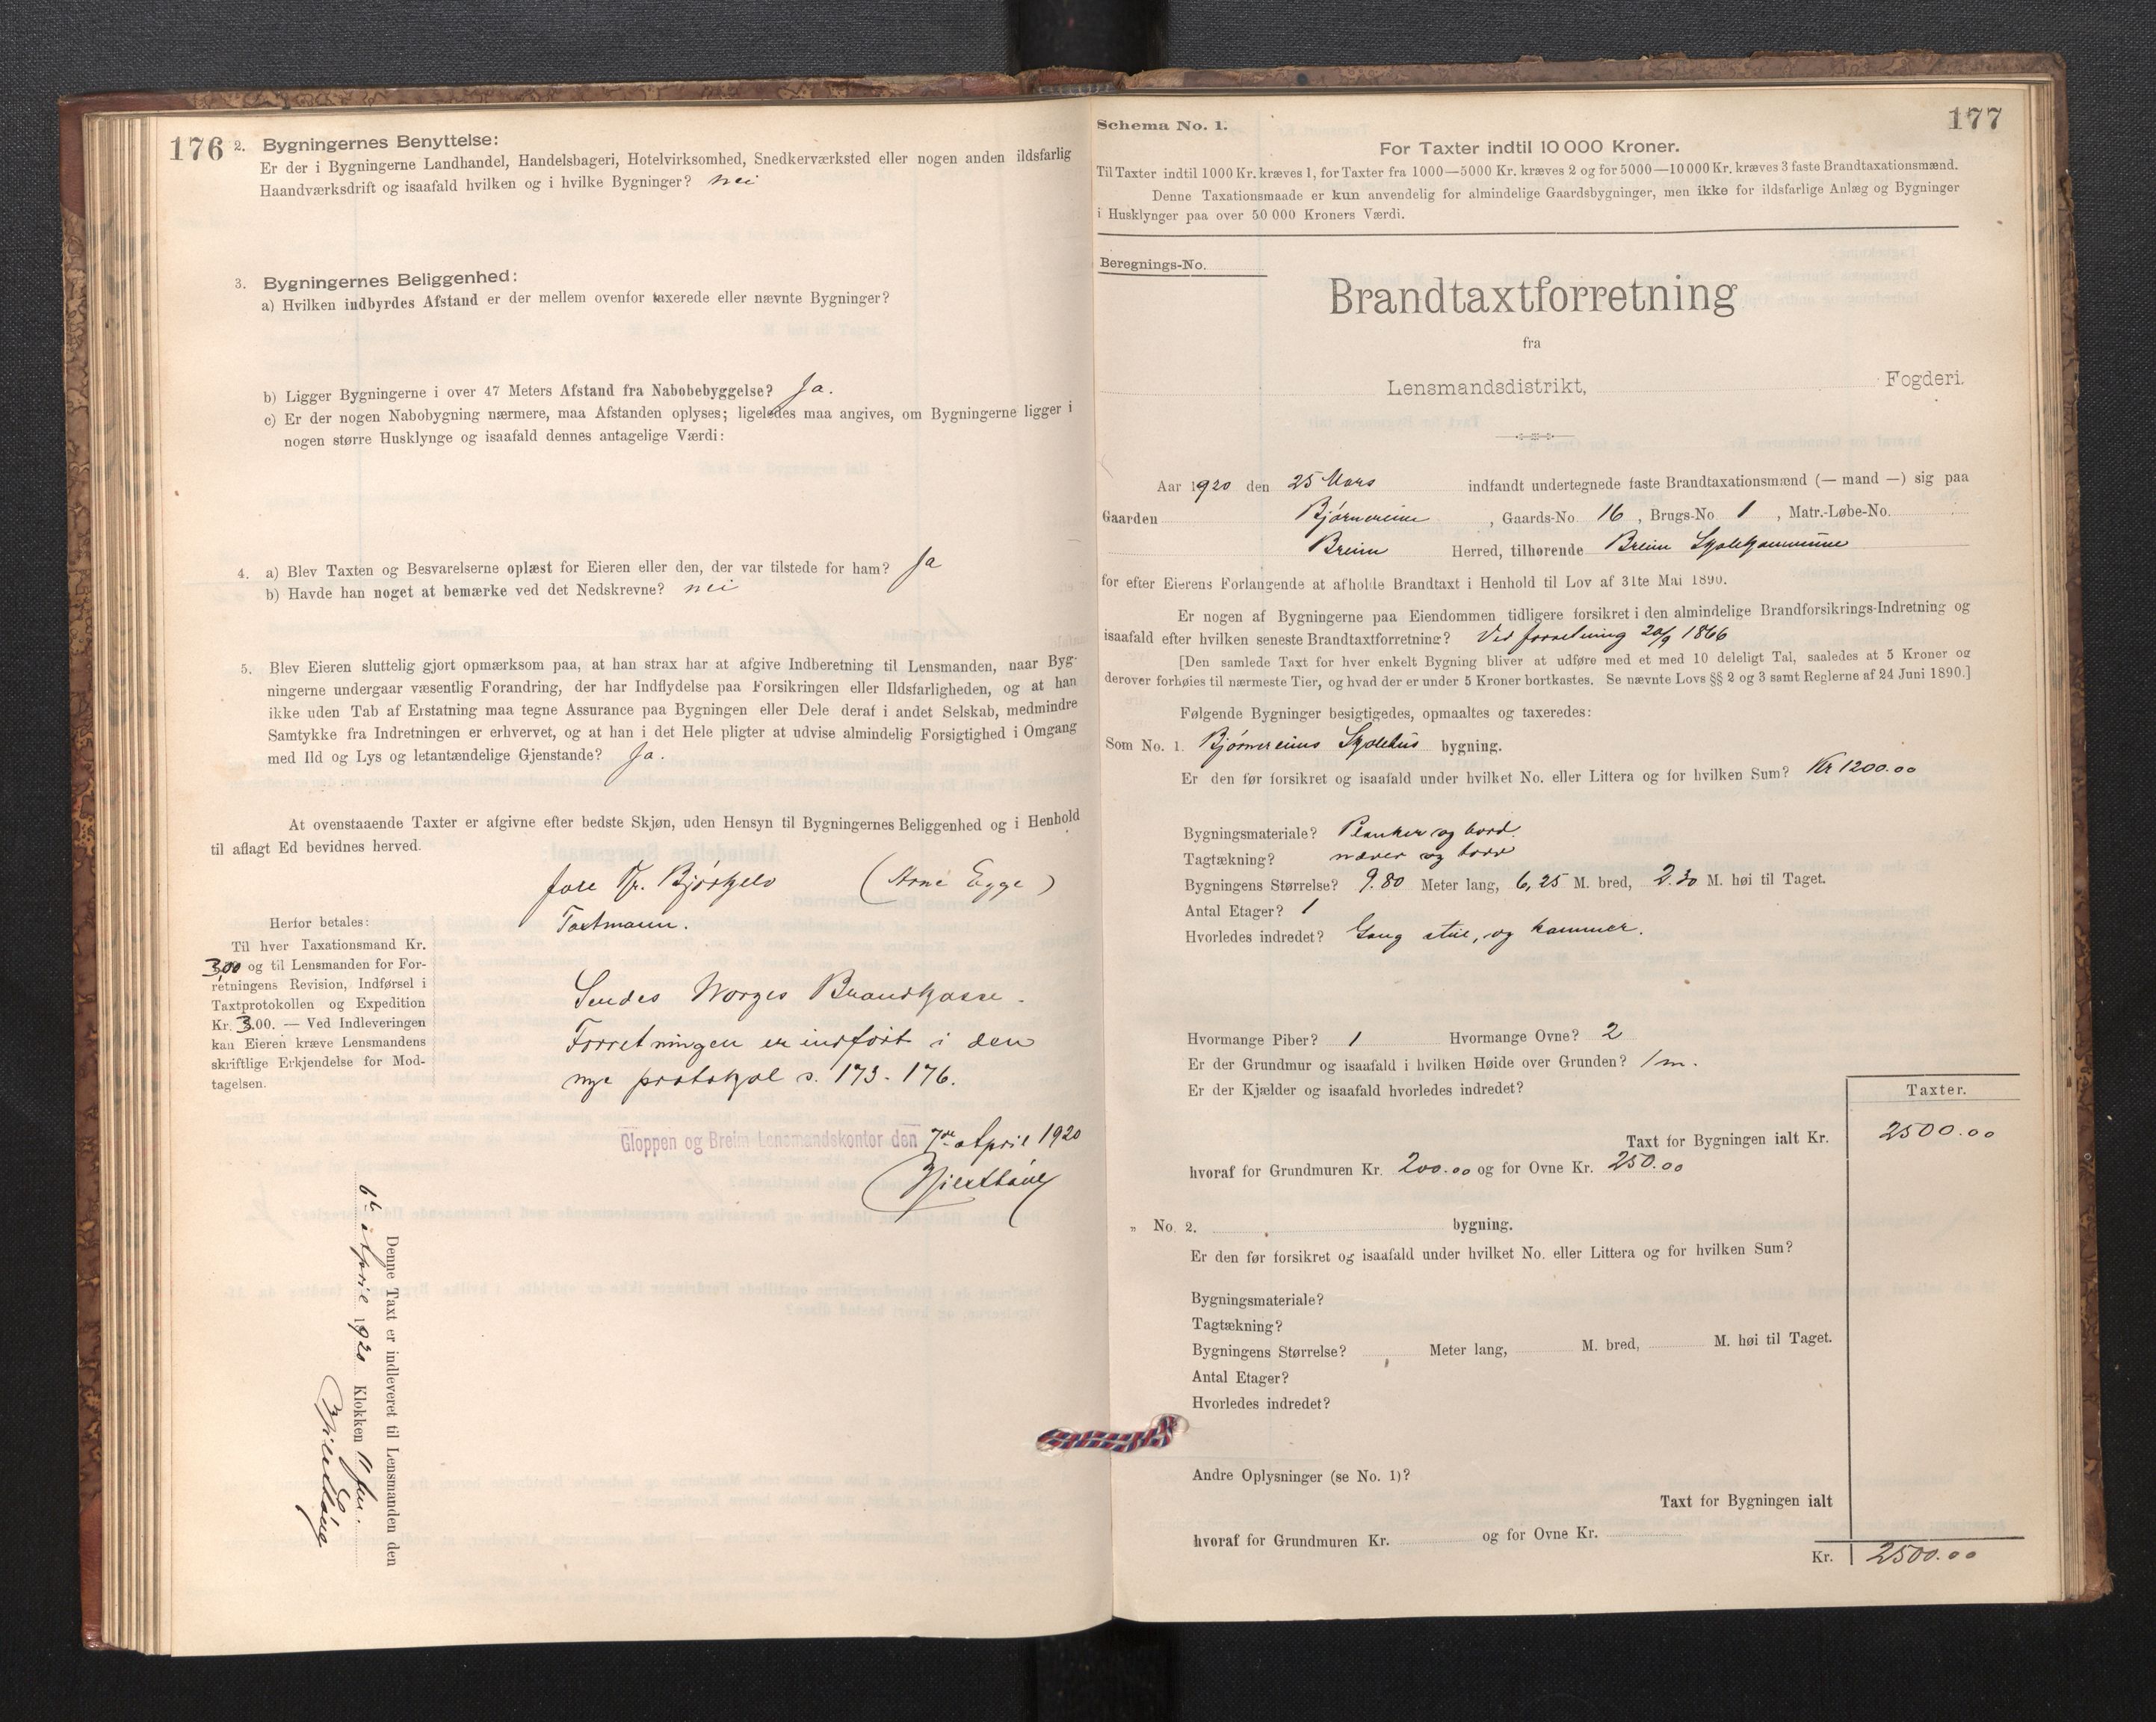 176
2. Bygningernes Benyttelse:
Er der i Bygningerne Landhandel, Handelsbageri, Hotelvirksomhed, Snedkerværksted eller nogen anden ildsfarlig
Haandværksdrift og isaafald hvilken og i hvilke Bygninger? nei
3. Bygningernes Beliggenhed:
a) Hvilken indbyrdes Afstand er der mellem ovenfor taxerede eller nævnte Bygninger?
b) Ligger Bygningerne i over 47 Meters Afstand fra Nabobebyggelse? Ja.
c) Er der nogen Nabobygning nærmere, maa Afstanden oplyses; ligeledes maa angives, om Bygningerne ligger i
nogen større Husklynge og isaafald dennes antagelige Værdi:
4. a) Blev Taxten og Besvarelserne oplæst for Eieren eller den, der var tilstede for ham? Ja
b) Havde han noget at bemærke ved det Nedskrevne? nei
5. Blev Eieren sluttelig gjort opmærksom paa, at han strax har at afgive Indberetning til Lensmanden, naar Byg-
ningerne undergaar væsentlig Forandring, der har Indflydelse paa Forsikringen eller Ildsfarligheden, og at han
ikke uden Tab af Erstatning maa tegne Assurance paa Bygningen eller Dele deraf i andet Selskab, medmindre
Samtykke fra Indretningen er erhvervet, og at han i det Hele pligter at udvise almindelig Forsigtighed i Omgang
med Ild og Lys og letantændelige Gjenstande? Ja.
At ovenstaaende Taxter er afgivne efter bedste Skjøn, uden Hensyn til Bygningernes Beliggenhed og i Henhold
til aflagt Ed bevidnes herved.
(Arne Egge)
Taxtmann.
Herfor betales:
Til hver Taxationsmand Kr.
3,00 og til Lensmanden for For-
retningens Revision, Indførsel i
Taxtprotokollen og Expedition
Kr. 3.00. — Ved Indleveringen
kan Eieren kræve Lensmandens
skriftlige Erkjendelse for Mod-
tagelsen.
Sendes Norges Brandkasse.
Forretningen er indført i den
nye protokol s. 173-176.
Gloppen og Breim Lensmandskontor den 7de April 1920
Denne Taxt er indleveret til Lensmanden den
6te April 1920 Klokken 11 fm.
177
Schema No. 1.
For Taxter indtil 10 000 Kroner.
Til Taxter indtil 1000 Kr. kræves 1, for Taxter fra 1000—5000 Kr. kræves 2 og for 5000—10 000 Kr. kræves 3 faste Brandtaxationsmænd.
Denne Taxationsmaade er kun anvendelig for almindelige Gaardsbygninger, men ikke for ildsfarlige Anlæg og Bygninger
i Husklynger paa over 50 000 Kroners Værdi.
Beregnings-No.
Brandtaxtforretning
fra
Lensmandsdistrikt, Fogderi.
Aar 1920 den 25 Mars indfandt undertegnede faste Brandtaxationsmænd (— mand —) sig paa
Gaarden Bjørnereim, Gaards-No. 16, Brugs-No. 1, Matr.-Løbe-No.
Breim Herred, tilhørende Breim Skolekommune
for efter Eierens Forlangende at afholde Brandtaxt i Henhold til Lov af 31te Mai 1890.
Er nogen af Bygningerne paa Eiendommen tidligere forsikret i den almindelige Brandforsikrings-Indretning og
isaafald efter hvilken seneste Brandtaxtforretning? Ved forretning 20/9 1866
[Den samlede Taxt for hver enkelt Bygning bliver at udføre med et med 10 deleligt Tal, saaledes at 5 Kroner og
derover forhøies til nærmeste Tier, og hvad der er under 5 Kroner bortkastes. Se nævnte Lovs §§ 2 og 3 samt Reglerne af 24 Juni 1890.]
Følgende Bygninger besigtigedes, opmaaltes og taxeredes:
Som No. 1. Bjørnereims Skolehus bygning.
Er den før forsikret og isaafald under hvilket No. eller Littera og for hvilken Sum? Kr 1200.00
Bygningsmateriale? Planker og bord
Tagtækning? næver og torv
Bygningens Størrelse? 9.80 Meter lang, 6,25 M. bred, 2.30 M. høi til Taget.
Antal Etager? 1
Hvorledes indredet? Gang stue, og kammer.
Hvormange Piber? 1 Hvormange Ovne? 2
Er der Grundmur og isaafald i hvilken Høide over Grunden? 1 m.
Er der Kjælder og isaafald hvorledes indredet?
Taxter.
Taxt for Bygningen ialt Kr. 2500.00
hvoraf for Grundmuren Kr. 200.00 og for Ovne Kr. 250.00
„ No. 2. bygning.
Er den før forsikret og isaafald under hvilket No. eller Littera og for hvilken Sum?
Bygningsmateriale?
Tagtækning?
Bygningens Størrelse? Meter lang, M. bred, M. høi til Taget.
Antal Etager?
Hvorledes indredet?
Andre Oplysninger (se No. 1)?
Taxt for Bygningen ialt
hvoraf for Grundmuren Kr. og for Ovne Kr.
Kr. 2500.00